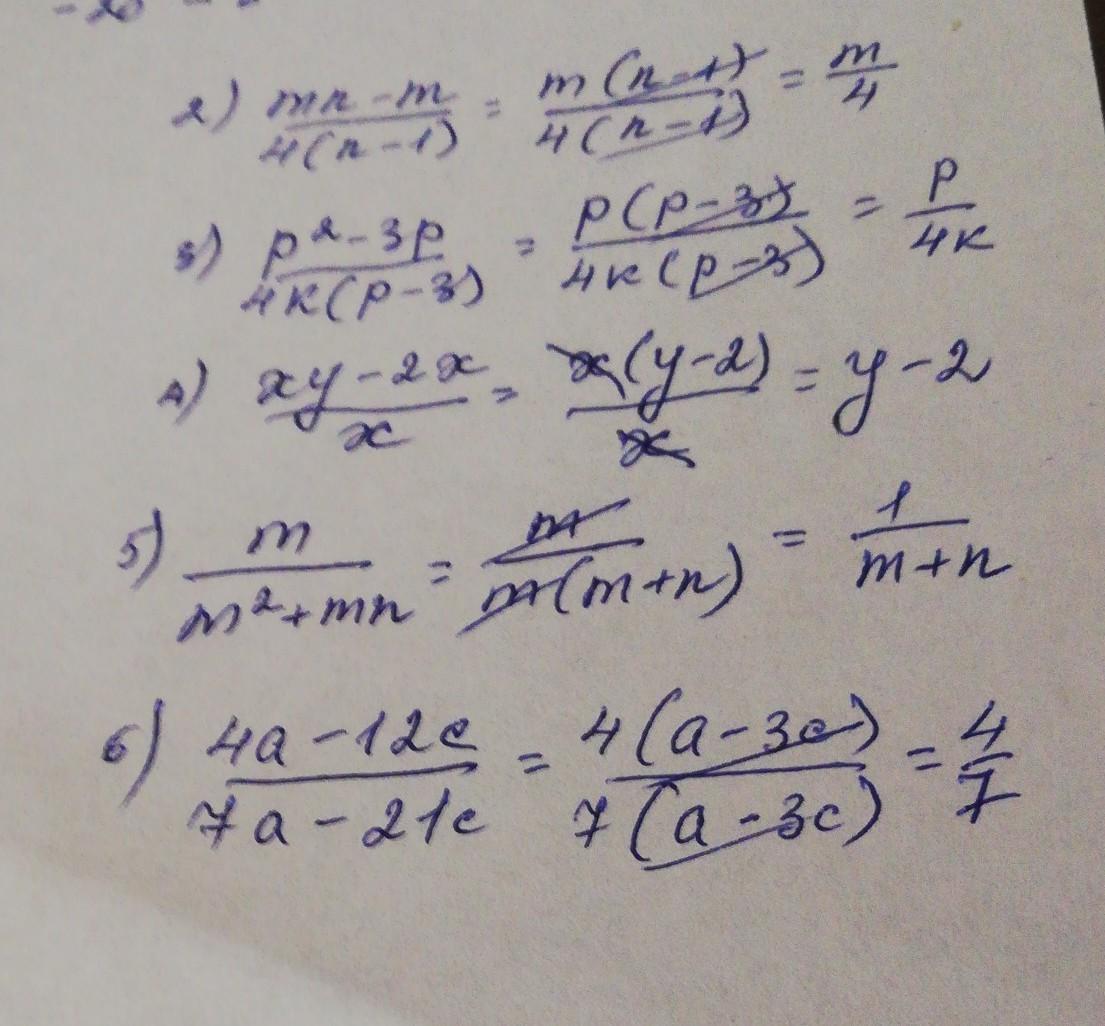 2) (mn - m)/(4(n - 1)) = (m(n - 1))/(4(n - 1)) = m/4
3) (p² - 3p)/(4k(p - 3)) = (p(p - 3))/(4k(p - 3)) = p/4k
4) (xy - 2x)/x = (x(y - 2))/x = y - 2
5) m/(m² + mn) = m/(m(m + n)) = 1/(m + n)
6) (4a - 12c)/(7a - 21c) = (4(a - 3c))/(7(a - 3c)) = 4/7